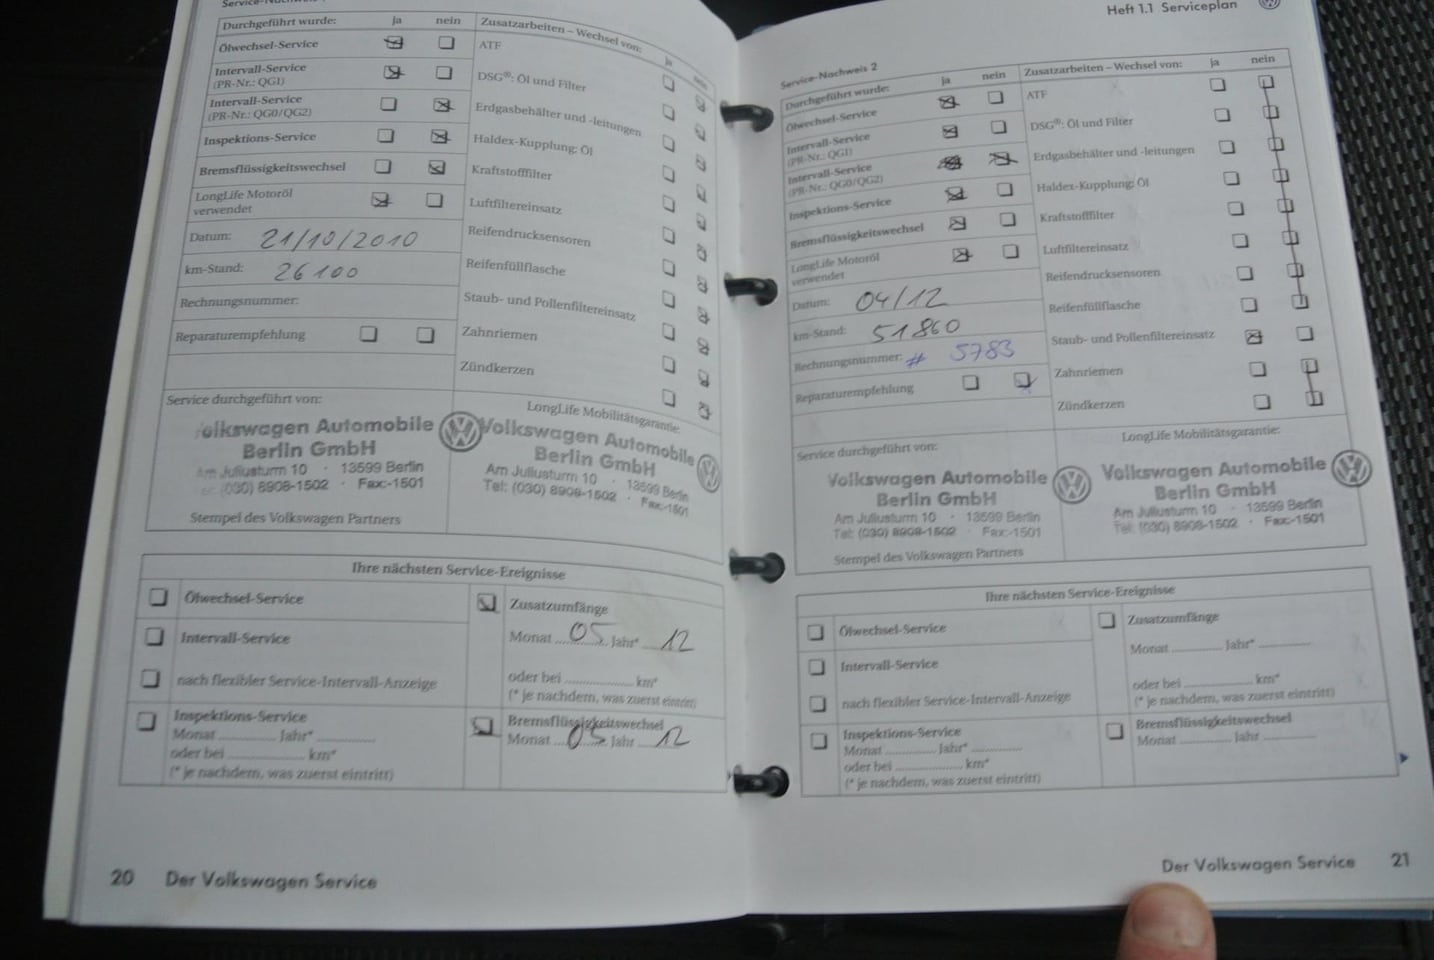 Durchgeführt wurde: ja nein
Ölwechsel-Service
Intervall-Service
(PR-Nr.: QG1)
Intervall-Service
(PR-Nr.: QG0/QG2)
Inspektions-Service
Bremsflüssigkeitswechsel
LongLife Motoröl
verwendet
Datum: 21/10/2010
km-Stand: 26100
Rechnungsnummer:
Reparaturempfehlung
Zusatzarbeiten – Wechsel von: ja nein
ATF
DSG®: Öl und Filter
Erdgasbehälter und -leitungen
Haldex-Kupplung: Öl
Kraftstofffilter
Luftfiltereinsatz
Reifendrucksensoren
Reifenfüllflasche
Staub- und Pollenfiltereinsatz
Zahnriemen
Zündkerzen
Service durchgeführt von:
Volkswagen Automobile
Berlin GmbH
Am Juliusturm 10 · 13599 Berlin
Tel: (030) 8908-1502 · Fax:-1501
Stempel des Volkswagen Partners
LongLife Mobilitätsgarantie:
Volkswagen Automobile
Berlin GmbH
Am Juliusturm 10 · 13599 Berlin
Tel: (030) 8908-1502 · Fax:-1501
Ihre nächsten Service-Ereignisse
Ölwechsel-Service
Intervall-Service
nach flexibler Service-Intervall-Anzeige
Inspektions-Service
Monat ............ Jahr* ............
oder bei ............ km*
(* je nachdem, was zuerst eintritt)
Zusatzumfänge
Monat 05 Jahr* 12
oder bei ............ km*
(* je nachdem, was zuerst eintritt)
Bremsflüssigkeitswechsel
Monat 05 Jahr 12
20 Der Volkswagen Service
Heft 1.1 Serviceplan
Service-Nachweis 2
Durchgeführt wurde: ja nein
Ölwechsel-Service
Intervall-Service
(PR-Nr.: QG1)
Intervall-Service
(PR-Nr.: QG0/QG2)
Inspektions-Service
Bremsflüssigkeitswechsel
LongLife Motoröl
verwendet
Datum: 04/12
km-Stand: 51860
Rechnungsnummer: # 5783
Reparaturempfehlung
Zusatzarbeiten – Wechsel von: ja nein
ATF
DSG®: Öl und Filter
Erdgasbehälter und -leitungen
Haldex-Kupplung: Öl
Kraftstofffilter
Luftfiltereinsatz
Reifendrucksensoren
Reifenfüllflasche
Staub- und Pollenfiltereinsatz
Zahnriemen
Zündkerzen
Service durchgeführt von:
Volkswagen Automobile
Berlin GmbH
Am Juliusturm 10 · 13599 Berlin
Tel: (030) 8908-1502 · Fax:-1501
Stempel des Volkswagen Partners
LongLife Mobilitätsgarantie:
Volkswagen Automobile
Berlin GmbH
Am Juliusturm 10 · 13599 Berlin
Tel: (030) 8908-1502 · Fax:-1501
Ihre nächsten Service-Ereignisse
Ölwechsel-Service
Intervall-Service
nach flexibler Service-Intervall-Anzeige
Inspektions-Service
Monat ............ Jahr* ............
oder bei ............ km*
(* je nachdem, was zuerst eintritt)
Zusatzumfänge
Monat ............ Jahr* ............
oder bei ............ km*
(* je nachdem, was zuerst eintritt)
Bremsflüssigkeitswechsel
Monat ............ Jahr ............
Der Volkswagen Service 21